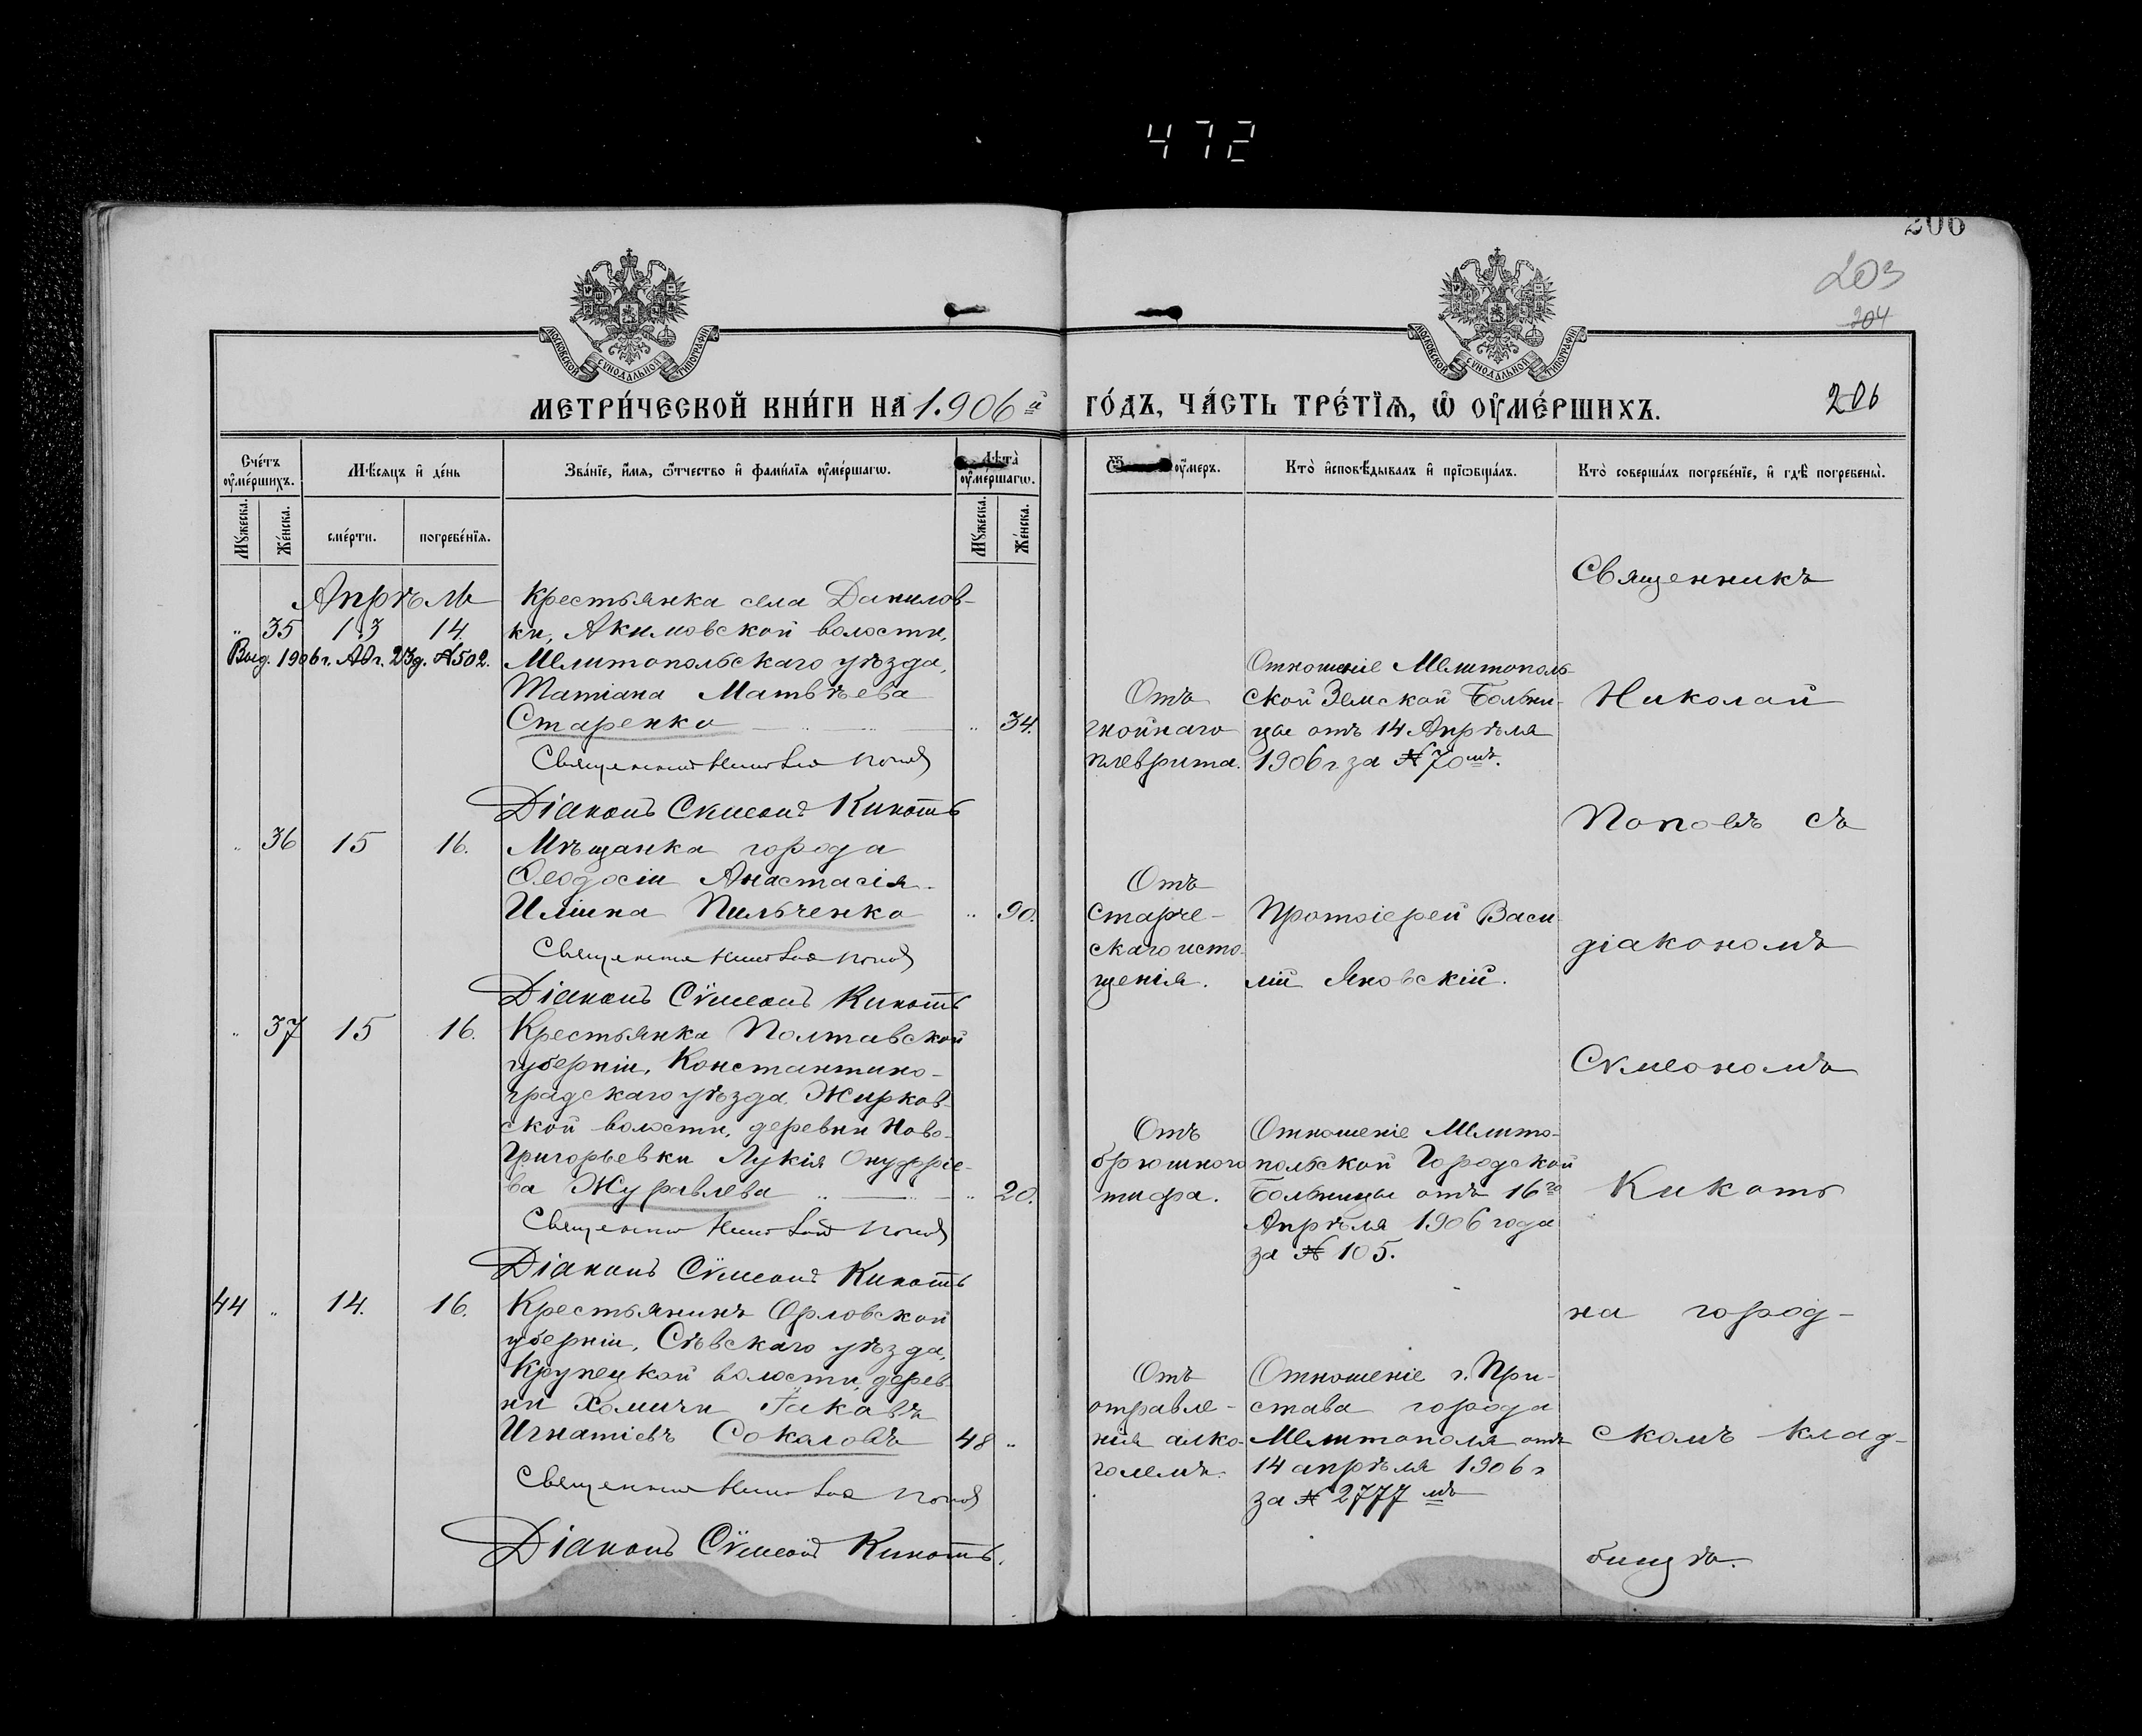 472
206
203
204
206
МОСКОВСКОЙ СУНОДАЛЬНОЙ ТИПОГРАФІИ
МОСКОВСКОЙ СУНОДАЛЬНОЙ ТИПОГРАФІИ
МЕТРИ́ЧЕСКОЙ КНИ́ГИ НА 1.906й
ГО́ДЪ, ЧА́СТЬ ТРЕ́ТІѦ, Ѡ ОУ҆МЕ́РШИХЪ.
Сче́тъ оу҆ме́ршихъ.
Мꙋ́жеска.
Же́нска.
Мѣ́сѧцъ и҆ де́нь
сме́рти.
погребе́нїѧ.
Зва́нїе, и҆́мѧ, ѻ҆́тчество и҆ фами́лїѧ оу҆ме́ршагѡ.
Лѣта̀ оу҆ме́ршагѡ.
Мꙋ́жеска.
Же́нска.
оу҆́меръ.
Кто̀ и҆сповѣ́дывалъ и҆ прїѡбща́лъ.
Кто̀ соверша́лъ погребе́нїе, и҆ гдѣ̀ погребены̀.
Апрѣль
„ 35 13 14.
Выд. 1906 г. Авг. 23 д. №502.
Крестьянка села Данилов-
ки, Акимовской волости,
Мелитопольскаго уѣзда,
Татіана Матвѣева
Старенко „ 34.
Священникъ Николай Поповъ
Діаконъ Сѵмеонъ Кикоть
Отъ
гнойнаго
плеврита.
Отношеніе Мелитополь-
ской Земской Больни-
цы отъ 14 Апрѣля
1906 г. за № 70мъ.
„ 36 15 16.
Мѣщанка города
Ѳеодосіи Анастасія
Иліина Пильченко „ 90.
Священникъ Николай Поповъ
Діаконъ Сѵмеонъ Кикоть
Отъ
старче-
скаго исто-
щенія.
Протоіерей Васи-
лій Яновскій.
„ 37 15 16.
Крестьянка Полтавской
губерніи, Константино-
градскаго уѣзда, Жирков-
ской волости, деревни Ново-
Григорьевки Лукія Онуфріе-
ва Журавлева „ 20.
Священникъ Николай Поповъ
Діаконъ Сѵмеонъ Кикоть
Отъ
брюшного
тифа.
Отношеніе Мелито-
польской Городской
Больницы отъ 16го
Апрѣля 1906 года
за № 105.
44 „ 14. 16.
Крестьянинъ Орловской
губерніи, Сѣвскаго уѣзда,
Крупецкой волости, дерев-
ни Хомичи Іаковъ
Игнатіевъ Сокаловъ 48 „
Священникъ Николай Поповъ
Діаконъ Сѵмеонъ Кикоть.
Отъ
отравле-
нія алко-
големъ.
Отношеніе г. При-
става города
Мелитополя отъ
14 апрѣля 1906 г
за № 2777мъ
Священникъ
Николай
Поповъ съ
діакономъ
Сѵмеономъ
Кикоть
на город-
скомъ клад-
бищѣ.